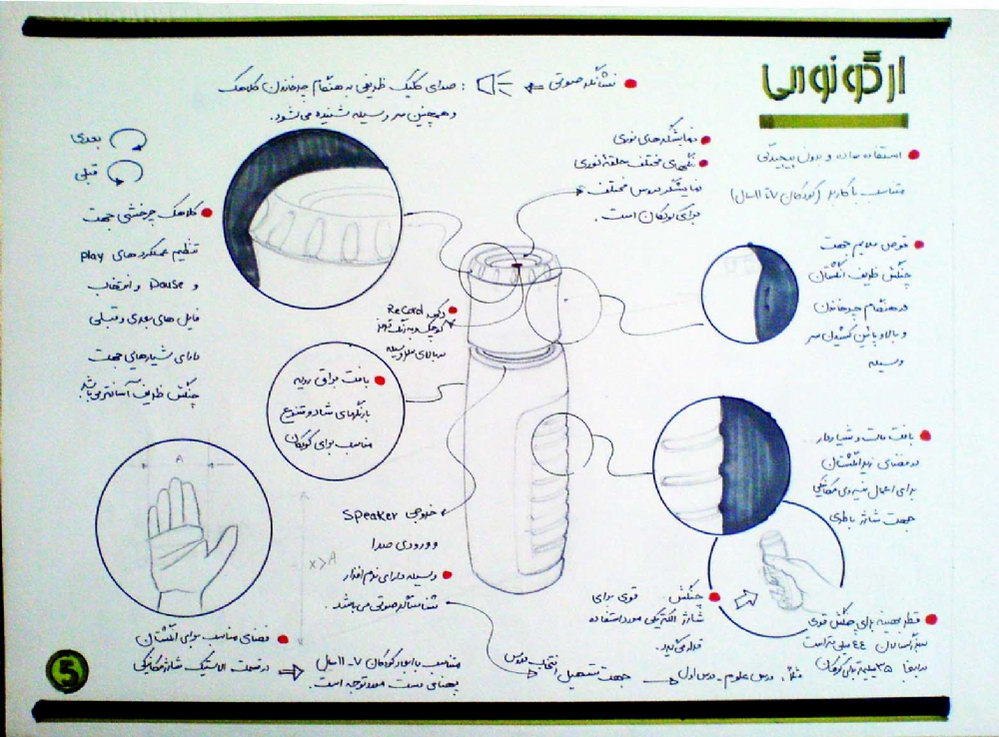 ارگونومی
نشانگر صوتی : صدای کلیک ظریفی به هنگام چرخاندن کلاهک
و همچنین سر وسیله شنیده می‌شود.
استفاده ساده و بدون پیچیدگی
متناسب با کاربر (کودکان ۷ تا ۱۱ سال)
نمایشگرهای نوری
رنگهای مختلف حلقه نوری
نمایشگر دروس مختلف
برای کودکان است.
بعدی
قبلی
کلاهک چرخشی جهت
تنظیم عملکردهای play
و Pause و انتخاب
فایل های بعدی و قبلی
دارای شیارهایی جهت
چنگش ظریف آسانتر می‌باشد.
قوس ملایم جهت
چنگش ظریف انگشتان
در هنگام چرخاندن
و بالا و پائین کشیدن سر
وسیله
دکمه Record
کوچک و به رنگ قرمز
در بالای وسیله
بافت براق رویه
با رنگهای شاد و متنوع
مناسب برای کودکان
بافت مات و شیاردار
در فضای زیر انگشتان
برای اعمال نیروی مکانیکی
جهت شارژ باطری
A
A
X>A
خروجی Speaker
و ورودی صدا
وسیله دارای نرم افزار
شناسائی صوتی می باشد.
چنگش قوی برای
شارژ الکتریکی مورد استفاده
قرار می گیرد.
قطر بهینه برای چنگش قوی
بزرگسالان ۴۴ میلی متر است
در اینجا ۳۵ میلیمتر برای کودکان
مثلاً، درس علوم - درس اول
جهت تسهیل انتخاب دروس
فضای مناسب برای انگشتان
در قسمت الاستیک شارژ مکانیکی
متناسب با ابعاد کودکان ۷-۱۱ سال
پهنای دست مورد توجه است.
5